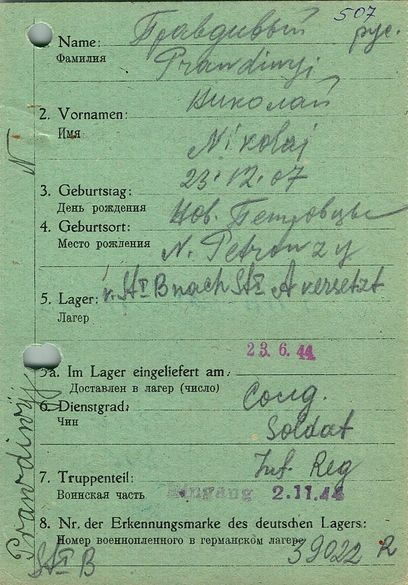 507
1. Name: Правдивый рус.
Фамилия Prawdiwyj
Николай
2. Vornamen:
Имя Nikolaj
3. Geburtstag: 23.12.07
День рождения Нов. Петровцы
4. Geburtsort:
Место рождения N. Petrowzy
v. St I B nach St I A versetzt
5. Lager:
Лагер
23.6.44
5a. Im Lager eingeliefert am:
Доставлен в лагер (число)
6. Dienstgrad: Солд.
Чин Soldat
7. Truppenteil: Inf. Reg
Воинская часть Eingang 2.11.44
8. Nr. der Erkennungsmarke des deutschen Lagers:
Номер военнопленного в германском лагере 39022 R
St I B
Prawdiwyj N